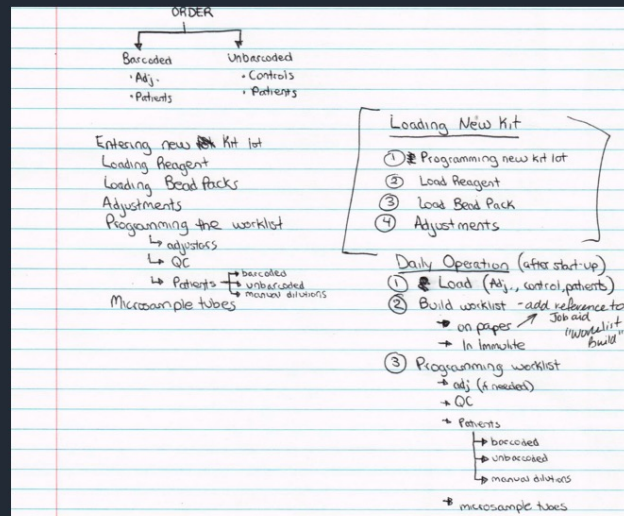 ORDER
Barcoded
• Adj.
• Patients
Unbarcoded
• Controls
• Patients
Entering new Kit lot
Loading Reagent
Loading Bead Packs
Adjustments
Programming the worklist
↳ adjustors
↳ QC
↳ Patients → barcoded
→ unbarcoded
→ manual dilutions
Microsample tubes
Loading New Kit
① Programming new kit lot
② Load Reagent
③ Load Bead Pack
④ Adjustments
Daily Operation (after start-up)
① Load (Adj., control, patients)
② Build worklist - add reference to
Job aid
"Worklist
Build"
→ on paper
→ In Immulite
③ Programming worklist
→ adj (if needed)
→ QC
→ Patients
→ barcoded
→ unbarcoded
→ manual dilutions
→ microsample tubes